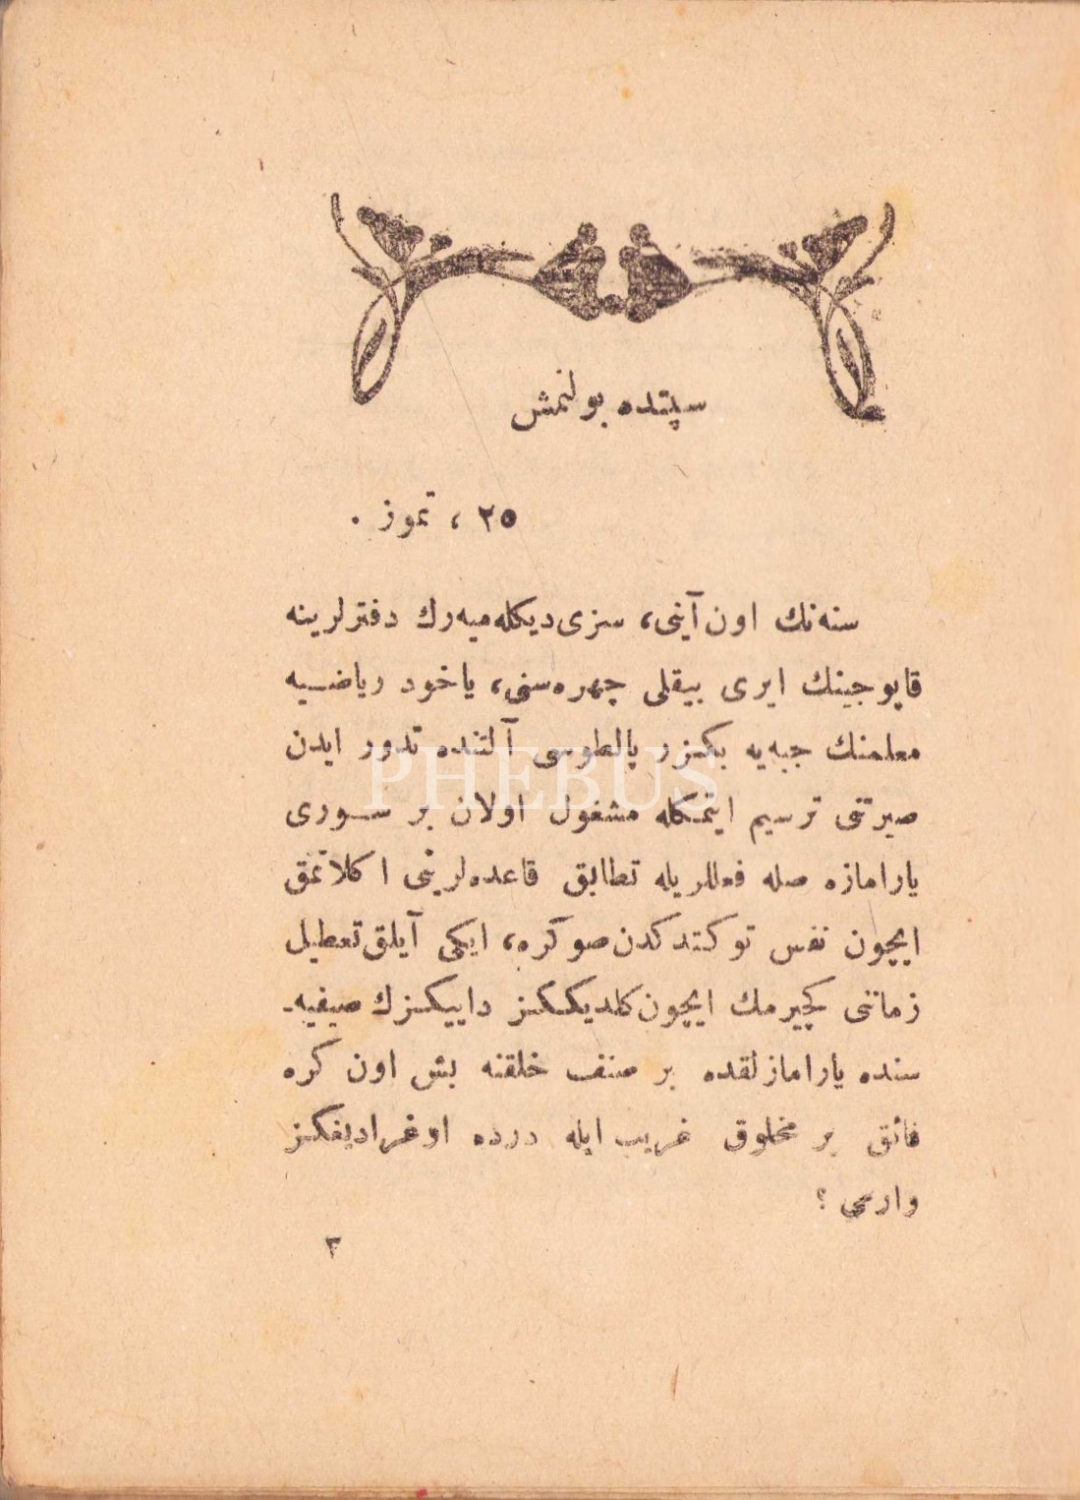 سپتده بولنمش
٢٥ ، تموز .
سنه‌نك اون آینی، سزی دیكله‌میه‌رك دفترلرینه
قاپوجینك ایری بیقلی چهره‌سنی، یاخود ریاضیه
معلمنك جبه‌یه بكزر پالطوسی آلتنده تدور ایدن
صیرتنی ترسیم ایتمكله مشغول اولان بر سوری
یارامازه صله فعللریله تطابق قاعده‌لرینی اكلاتمق
ایچون نفس توكتدكدن صوكره، ایكی آیلق تعطیل
زماننی كچیرمك ایچون كلدیككز داییكزك صیفیه‌ـ
سنده یارامازلقده بر صنف خلقنه بش اون كره
فائق بر مخلوق غریب ایله درده اوغرادیغكز
وارمی ؟
٢
PHEBUS